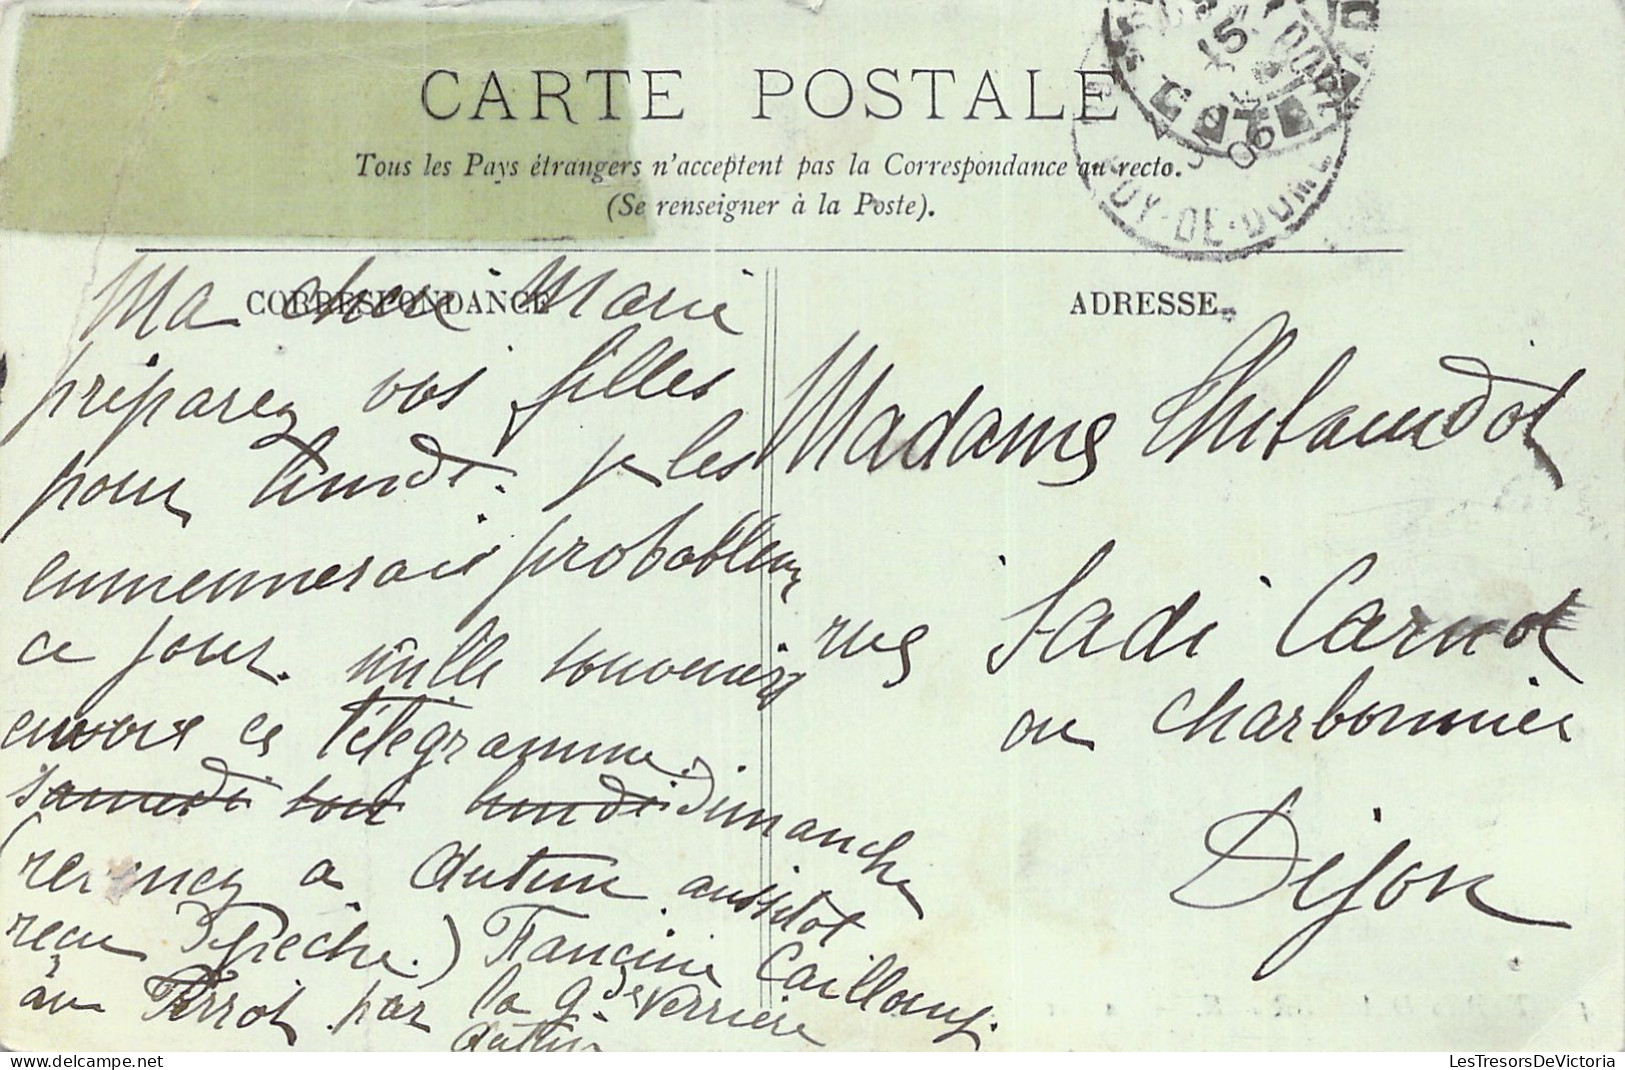 CARTE POSTALE
Tous les Pays étrangers n'acceptent pas la Correspondance au recto.
(Se renseigner à la Poste).
15
06
PUY-DE-DOME
CORRESPONDANCE
Ma chere Marie
préparez vos filles
pour lundi. je les
emmennerai probablem
ce jour. mille souvenirs
envoie ce télégramme.
samedi soir lundi Dimanche
(venez à Autun aussitot
reçu Dépèche.) Francine Cailloux
au Perrot par la Gde Verrière
Autun
ADRESSE
Madame Thibaudot
rue Sadi Carnot
ou Charbonnier
Dijon
LesTresorsDeVictoria